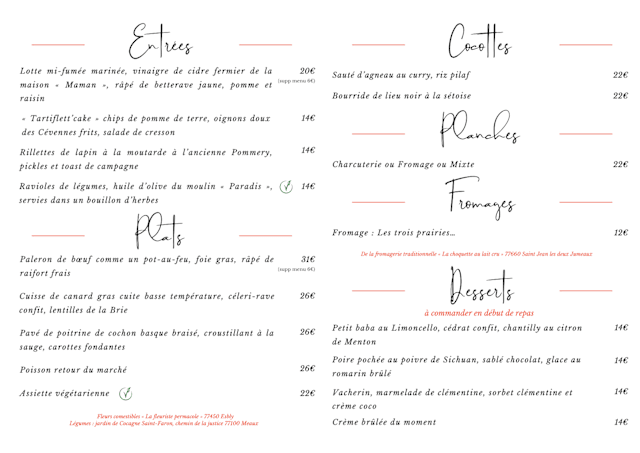 Entrées
Lotte mi-fumée marinée, vinaigre de cidre fermier de la 20€
maison « Maman », râpé de betterave jaune, pomme et (supp menu 6€)
raisin
« Tartiflett'cake » chips de pomme de terre, oignons doux 14€
des Cévennes frits, salade de cresson
Rillettes de lapin à la moutarde à l'ancienne Pommery, 14€
pickles et toast de campagne
Ravioles de légumes, huile d'olive du moulin « Paradis », 14€
servies dans un bouillon d'herbes
Plats
Paleron de bœuf comme un pot-au-feu, foie gras, râpé de 31€
raifort frais (supp menu 6€)
Cuisse de canard gras cuite basse température, céleri-rave 26€
confit, lentilles de la Brie
Pavé de poitrine de cochon basque braisé, croustillant à la 26€
sauge, carottes fondantes
Poisson retour du marché 26€
Assiette végétarienne 22€
Fleurs comestibles « La fleuriste permacole » 77450 Esbly
Légumes : jardin de Cocagne Saint-Faron, chemin de la justice 77100 Meaux
Cocottes
Sauté d'agneau au curry, riz pilaf 22€
Bourride de lieu noir à la sétoise 22€
Planches
Charcuterie ou Fromage ou Mixte 22€
Fromages
Fromage : Les trois prairies... 12€
De la fromagerie traditionnelle « La choquette au lait cru » 77660 Saint Jean les deux Jumeaux
Desserts
à commander en début de repas
Petit baba au Limoncello, cédrat confit, chantilly au citron 14€
de Menton
Poire pochée au poivre de Sichuan, sablé chocolat, glace au 14€
romarin brûlé
Vacherin, marmelade de clémentine, sorbet clémentine et 14€
crème coco
Crème brûlée du moment 14€